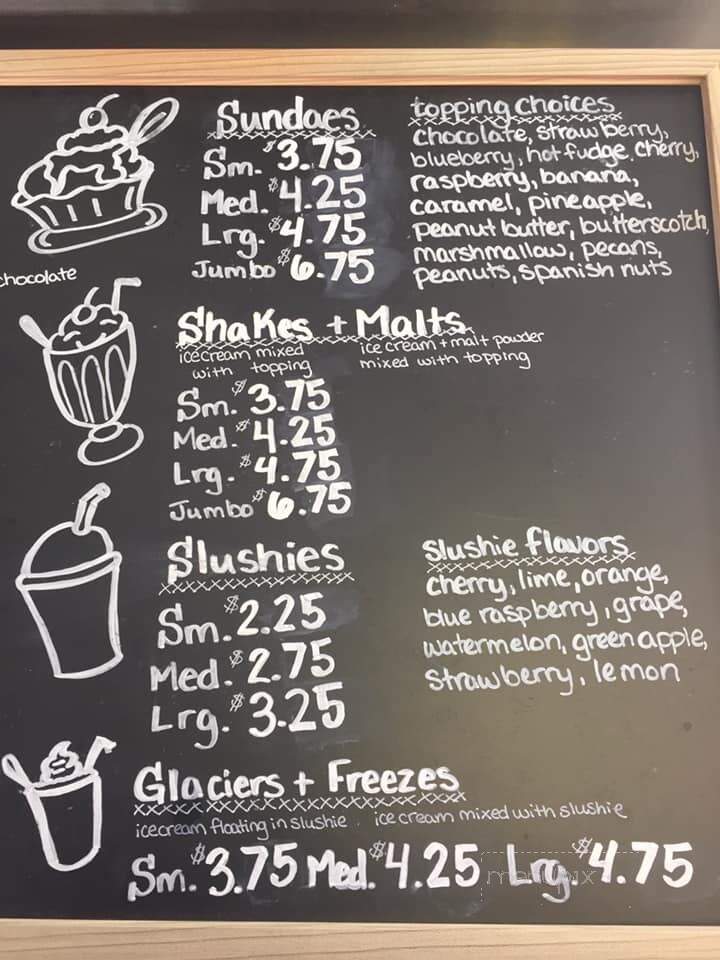 Sundaes
Sm. $3.75
Med. $4.25
Lrg. $4.75
Jumbo $6.75
topping choices
chocolate, strawberry,
blueberry, hot fudge, cherry,
raspberry, banana,
caramel, pineapple,
peanut butter, butterscotch,
marshmallow, pecans,
peanuts, spanish nuts
chocolate
Shakes + Malts
ice cream mixed
with topping
ice cream + malt powder
mixed with topping
Sm. $3.75
Med. $4.25
Lrg. $4.75
Jumbo $6.75
Slushies
Sm. $2.25
Med. $2.75
Lrg. $3.25
slushie flavors
cherry, lime, orange,
blue raspberry, grape,
watermelon, green apple,
strawberry, lemon
Glaciers + Freezes
icecream floating in slushie
ice cream mixed with slushie
Sm. $3.75 Med. $4.25 Lrg. $4.75
menupix